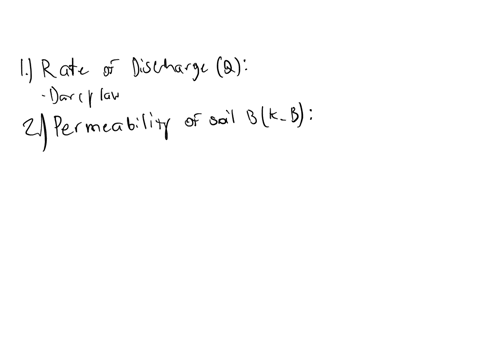 1.) Rate of Discharge (Q):
- Darcy law
2.) Permeability of soil B (K_B):